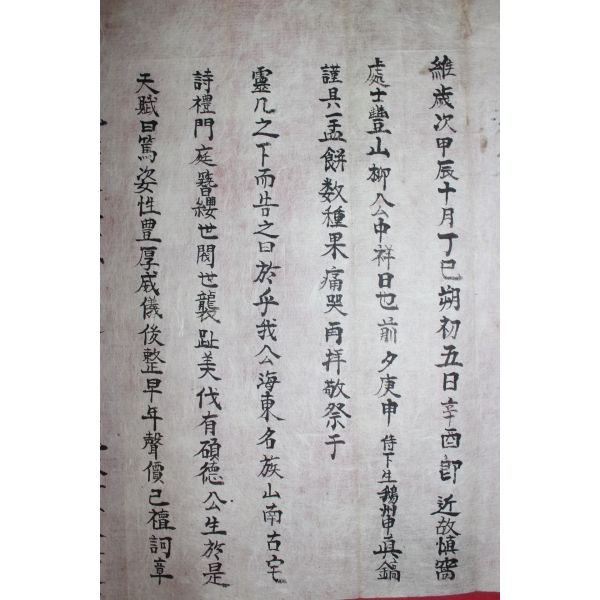 維歲次甲辰十月丁巳朔初五日辛酉卽近故愼窩
處士豐山柳公中祥日也前夕庚申侍下生鵝州申眞鎬
謹具一盂餠数種果痛哭再拜敬祭于
靈几之下而告之曰於乎我公海東名族山南古宅
詩禮門庭簪纓世閥世襲趾美代有碩德公生於是
天賦曰篤姿性豊厚威儀後整早年聲價已擅詞章